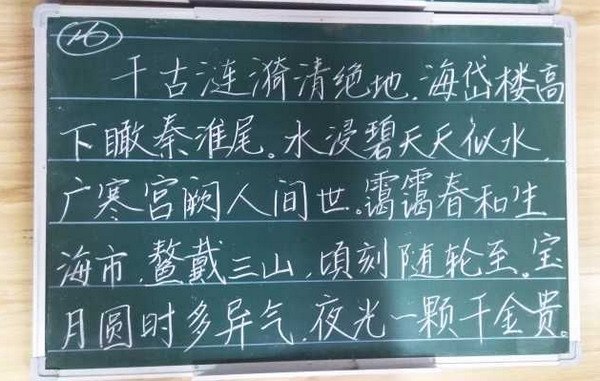 16
千古涟漪清绝地,海岱楼高
下瞰秦淮尾。水浸碧天天似水,
广寒宫阙人间世。霭霭春和生
海市,鳌戴三山,顷刻随轮至。宝
月圆时多异气,夜光一颗千金贵。